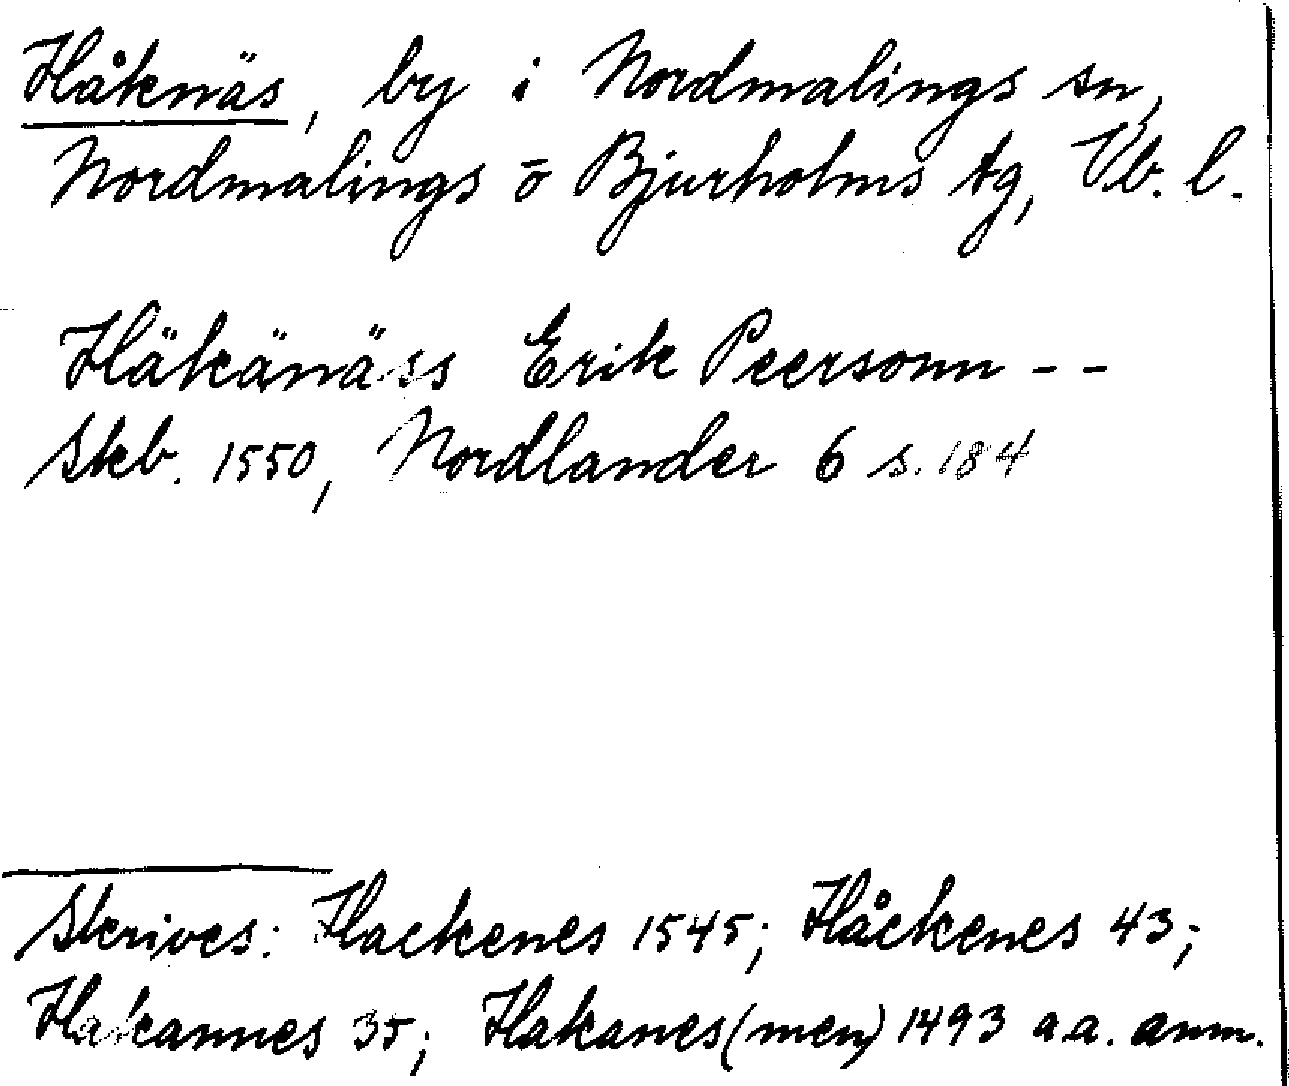 Håknäs, by i Nordmalings sn,
Nordmalings o Bjurholms tg, Vb. l.
Häkänäss Erik Peersonn - -
Skb. 1550, Nordlander 6 s. 184
Skrives: Hackenes 1545; Håckenes 43;
Hakannes 35; Hakanes (men) 1493 a.a. anm.